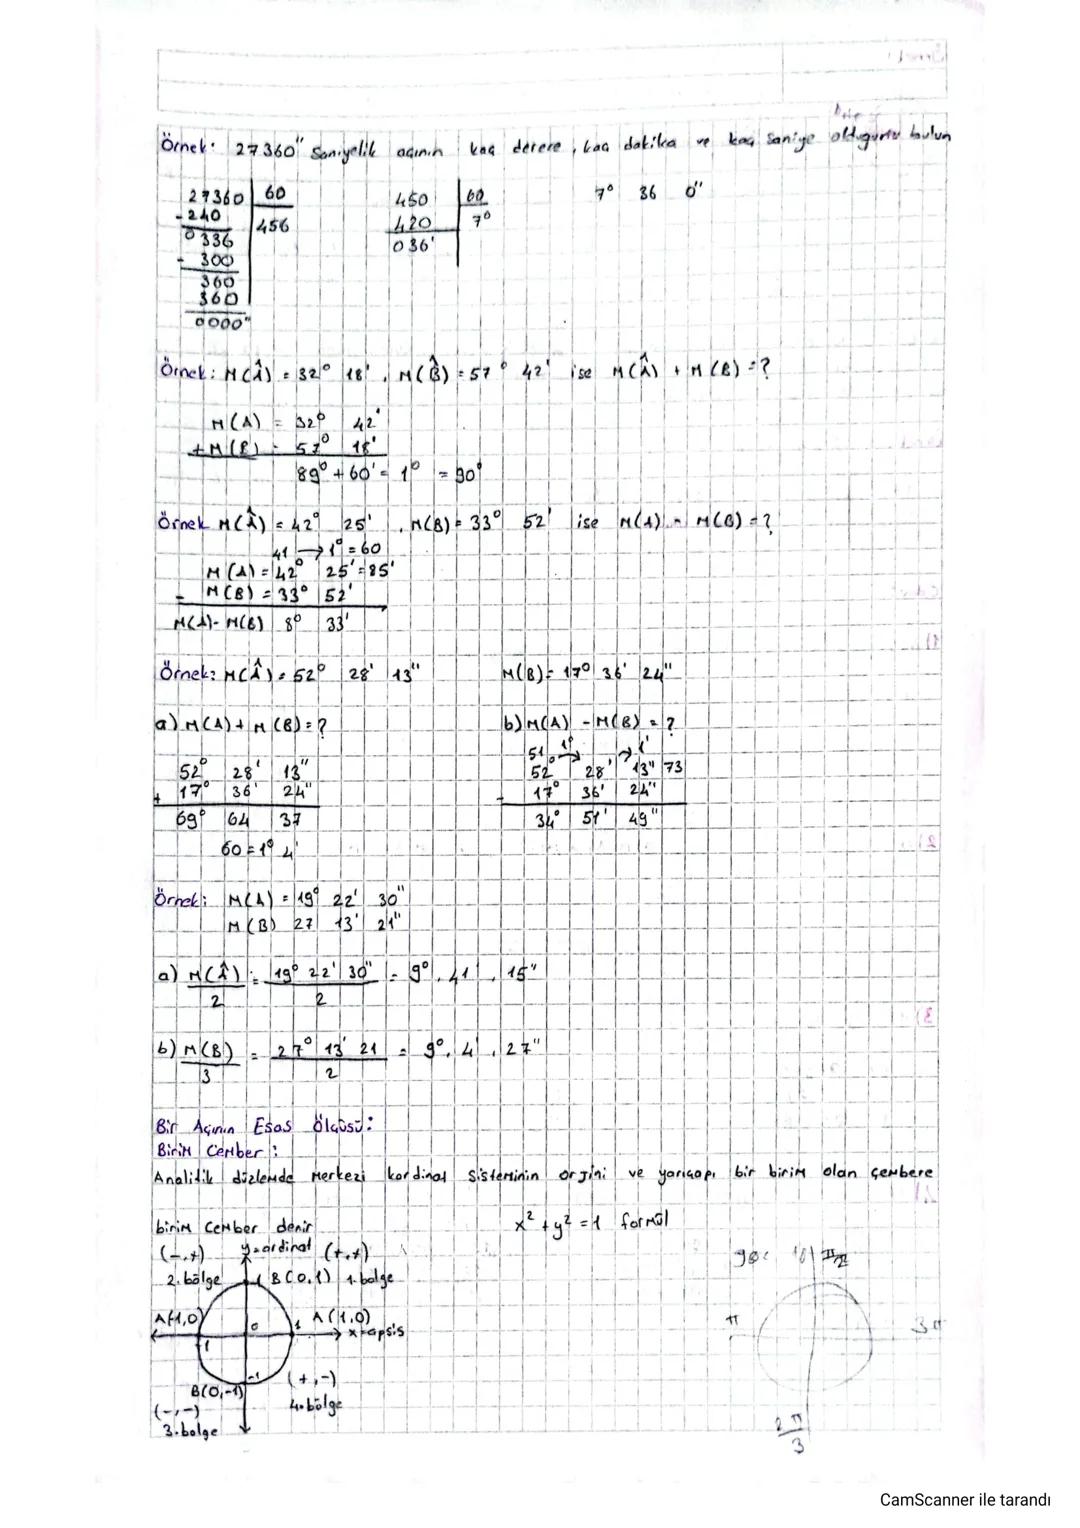 Örnek: 27360" Saniyelik açının kaç derere, kaç dakika ve kaç saniye olduğunu bulun
27360 | 60    450 | 60    7° 36 0"
- 240    456    420    7°
0336    036'
- 300
360
360
0000"
Örnek: M(Â) = 32° 18', M(B̂) = 57° 42' ise M(Â) + M(B) = ?
M(A) = 32° 42'
+ M(B) = 57° 18'
89° + 60' = 1° = 90°
Örnek M(Â) = 42° 25', M(B) = 33° 52' ise M(A) - M(B) = ?
41 → 1° = 60
M(A) = 42° 25' = 85'
- M(B) = 33° 52'
M(A) - M(B) 8° 33'
Örnek: M(Â) = 52° 28' 13"    M(B) = 17° 36' 24"
a) M(A) + M(B) = ?    b) M(A) - M(B) = ?
51 1° → 1'
52° 28' 13"    52° 28' 13" 73
+ 17° 36' 24"    - 17° 36' 24"
69° 64 37    34° 51' 49"
60 = 1° 4'
Örnek: M(A) = 19° 22' 30"
M(B) 27 13' 21"
a) M(Â)/2 = 19° 22' 30"/2 = 9°, 41', 15"
b) M(B)/3 = 27° 13' 21/2 = 9°, 4', 27"
Bir Açının Esas Ölçüsü:
Birim Cember:
Analitik düzlemde Merkezi kordinat Sisteminin orjini ve yarıçapı bir birim olan çembere
birim Cember denir    x² + y² = 1 formül
(-,+) y=ordinat (+,+)
2. bölge 1 B(0,1) 1. bölge
A(-1,0) 0 1 A(1,0)
x=apsis
-1
B(0,-1) -1 (+,-)
(-,-) 4. bölge
3. bolge
π
3π
2π
3
CamScanner ile tarandı